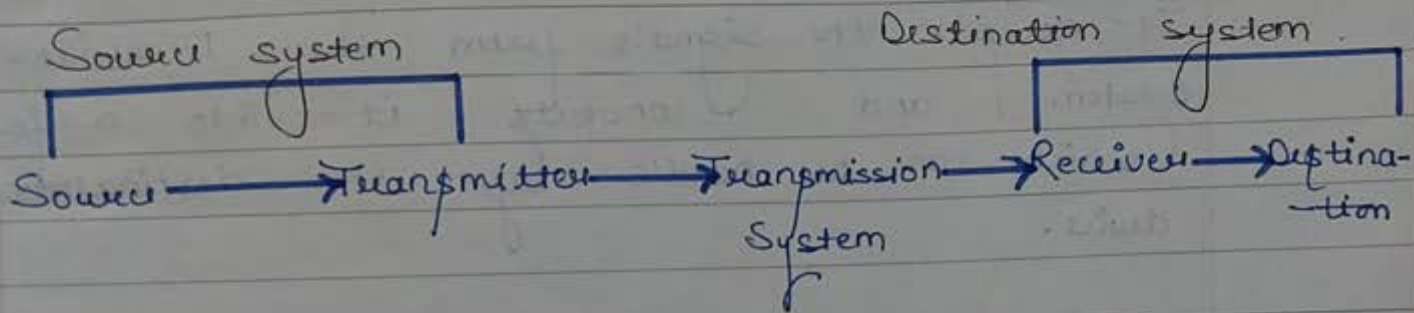 Source system Destination system.
Source Transmitter Transmission Receiver Destina-
System -tion